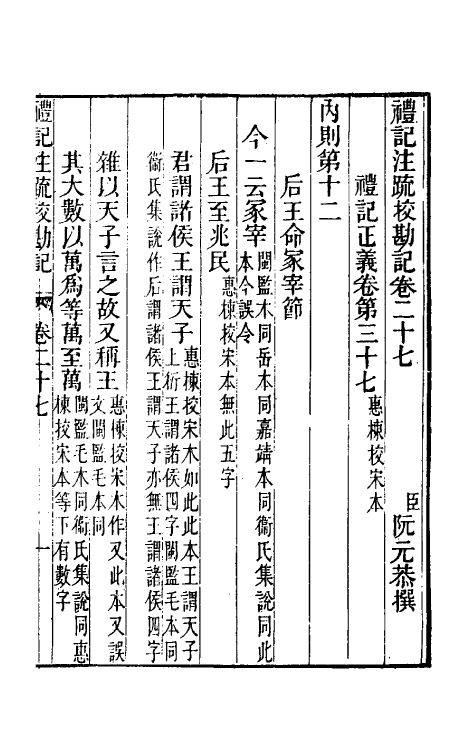 禮記注疏挍勘記卷二十七　臣阮元恭撰
禮記正義卷第三十七惠棟挍宋本
內則第十二
后王命冢宰節
今一云冢宰閩監本同岳本同嘉靖本同衞氏集說同此本今誤令
后王至兆民惠棟挍宋本無此五字
君謂諸侯王謂天子惠棟挍宋本如此此本王謂天子上衍王謂諸侯四字閩監毛本同
衞氏集說作后謂諸侯王謂天子亦無王謂諸侯四字
雖以天子言之故又稱王惠棟挍宋本作又此本又誤文閩監毛本同
其大數以萬爲等萬至萬閩監毛本同衞氏集說同惠棟挍宋本等下有數字
禮記注疏挍勘記　卷二十七　一